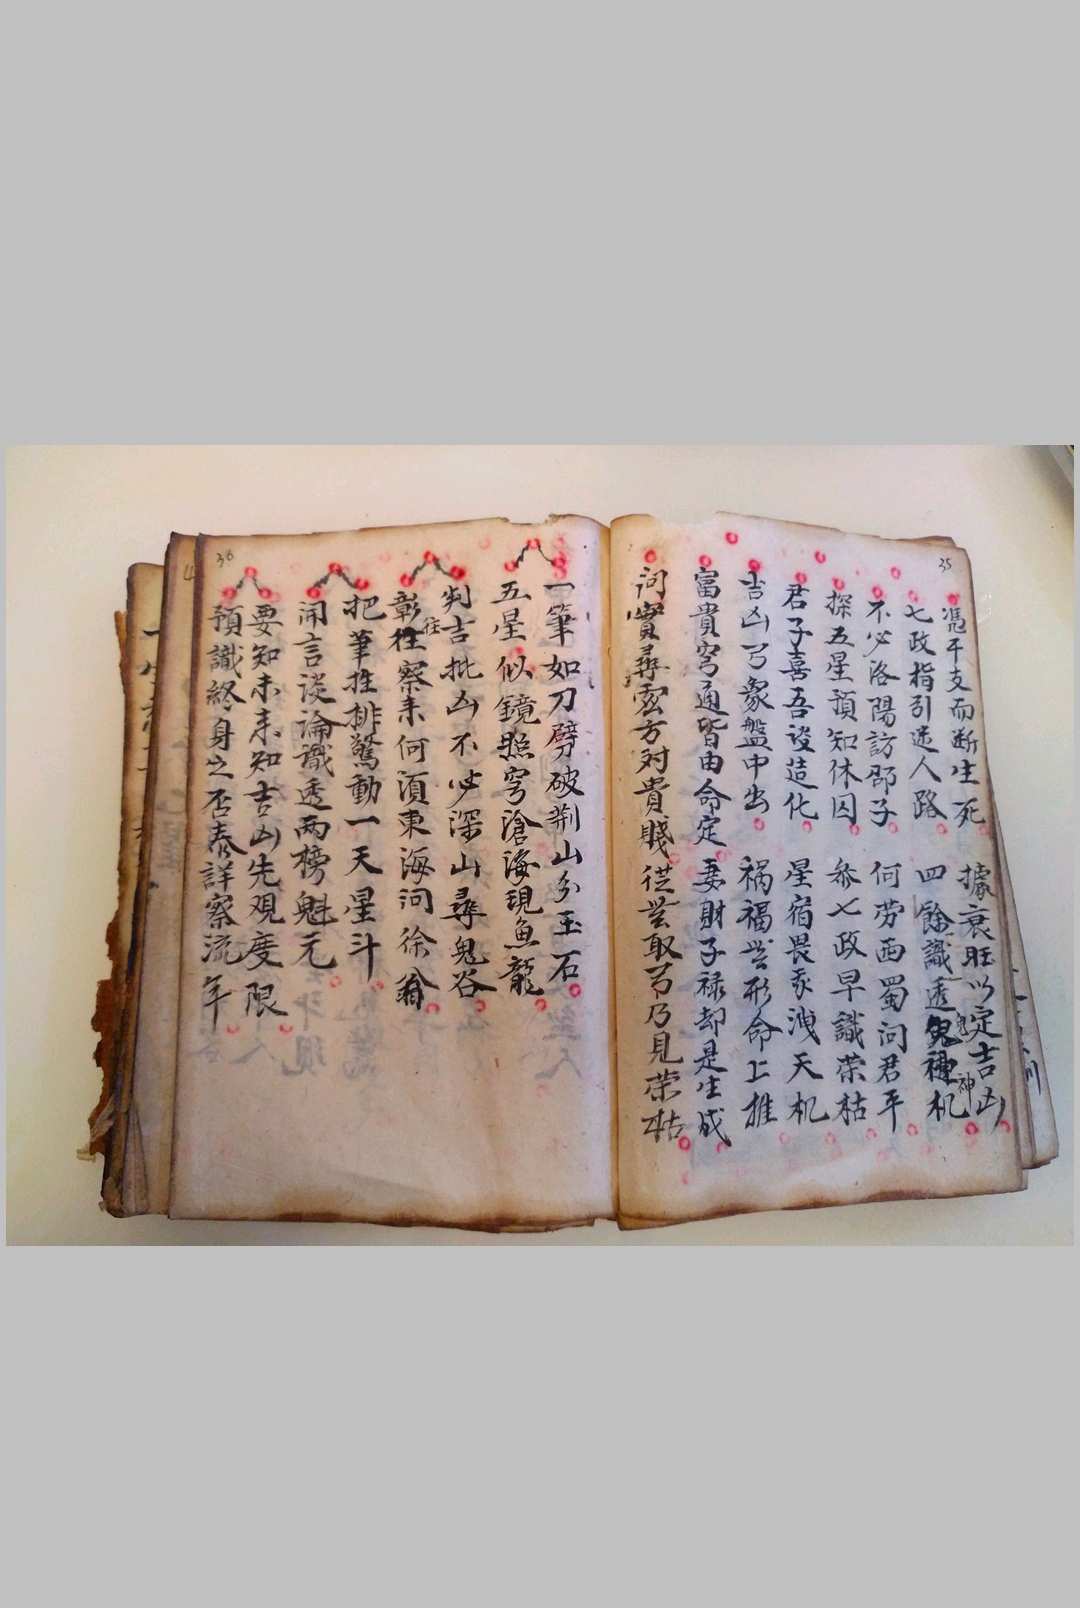 35
憑干支而断生死 據衰旺以定吉凶
七政指引迷人路 四餘識透鬼神机
不必洛陽訪邵子 何劳西蜀问君平
探五星預知休囚 参七政早識荣枯
君子喜吾談造化 星宿畏我洩天机
吉凶有象盤中出 祸福無形命上推
富貴窮通皆由命定 妻財子禄却是生成
问實尋虚方对貴賤 從無取有乃見荣枯
36
一筆如刀劈破荆山分玉石
五星似鏡照穷滄海現魚龍
判吉批凶不必深山尋鬼谷
彰往察来何須東海问徐翁
把筆推排驚動一天星斗
闹言談論識透两榜魁元
要知未来知吉凶先观度限
預識終身之否泰詳察流年